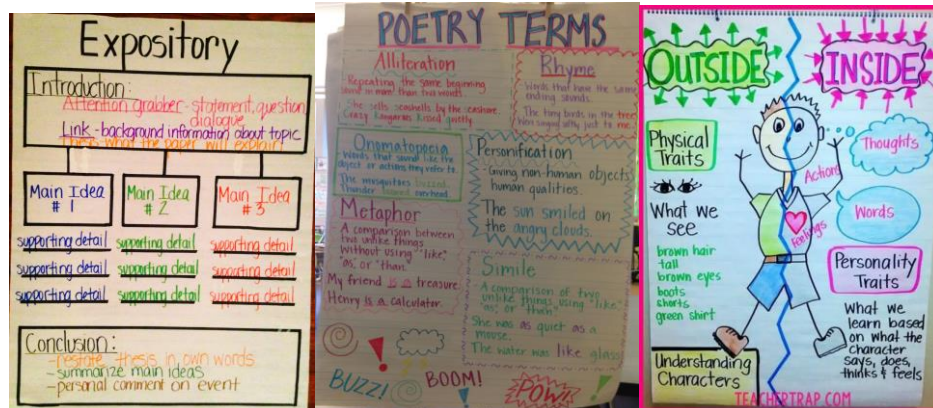 Expository
Introduction:
Attention grabber - statement, question
dialogue
Link - background information about topic
Thesis what the paper will explain
Main Idea
# 1
Main Idea
# 2
Main Idea
# 3
supporting detail
supporting detail
supporting detail
supporting detail
supporting detail
supporting detail
supporting detail
supporting detail
supporting detail
Conclusion:
-restate thesis in own words
-summarize main ideas
-personal comment on event
POETRY TERMS
Alliteration
Repeating the same beginning
sound in more than two words.
She sells seashells by the seashore.
Crazy kangaroos kissed
Rhyme
Words that have the same
ending sounds.
The tiny birds in the tree
softly just to me.
Onomatopoeia
- Words that sound like the
object or actions they refer to.
The mosquitoes buzzed.
Thunder overhead.
Personification
- Giving non-human objects
human qualities.
The sun smiled on
the angry clouds.
Metaphor
A comparison between
two unlike things
without using "like,"
"as," or "than."
My friend is a treasure.
Henry is a calculator.
Simile
-A comparison of two
unlike things using "like,"
"as," or "than."
She was as quiet as a
mouse.
The water was like glass
BUZZ!
BOOM!
POW!
OUTSIDE
INSIDE
Physical
Traits
What we
see
brown hair
tall
brown eyes
boots
shorts
green shirt
Understanding
Characters
Actions
Feelings
Thoughts
Words
Personality
Traits
What we
learn based
on what the
character
says, does,
thinks & feels
TEACHERTRAP.COM